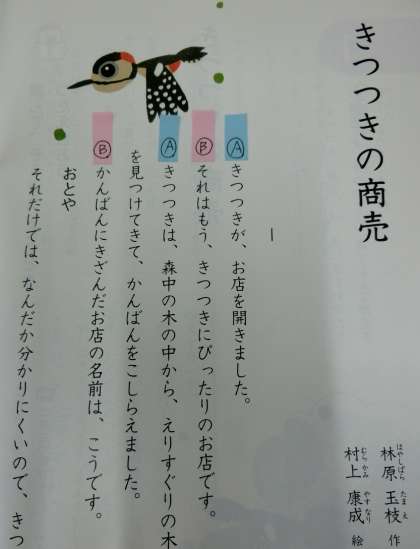 きつつきの商売
林原 玉枝 作
はやしばら たまえ
村上 康成 絵
むらかみ やすなり
一
Ⓐ きつつきが、お店を開きました。
Ⓑ それはもう、きつつきにぴったりのお店です。
Ⓐ きつつきは、森中の木の中から、えりすぐりの木
を見つけてきて、かんばんをこしらえました。
Ⓑ かんばんにきざんだお店の名前は、こうです。
おとや
それだけでは、なんだか分かりにくいので、きつ